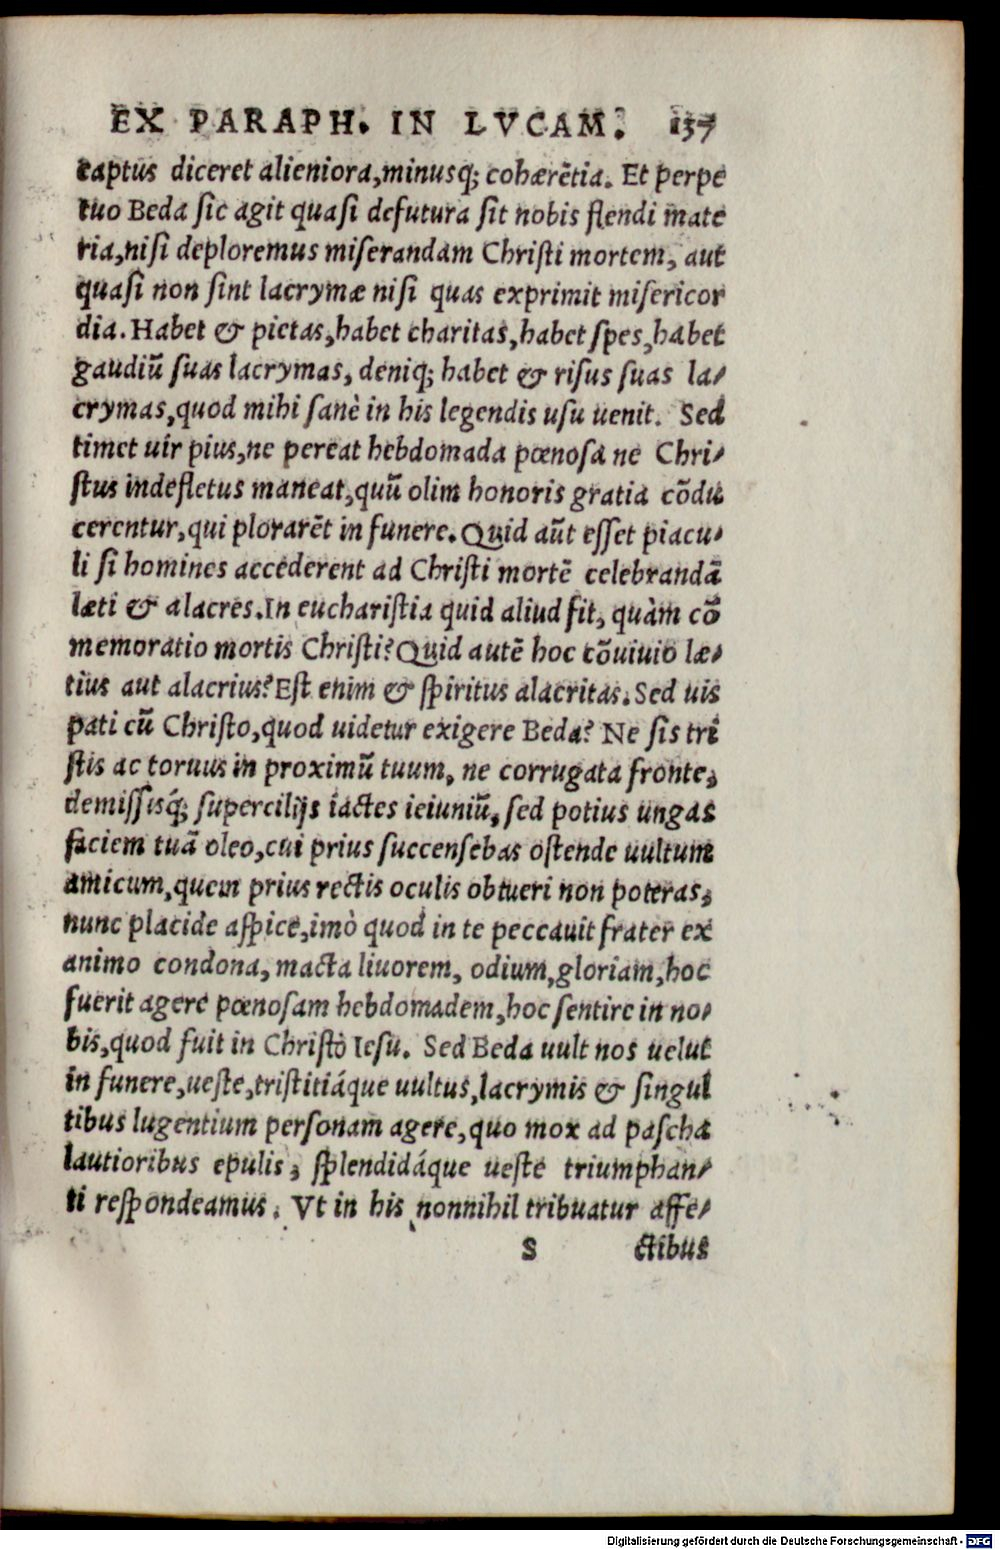 EX PARAPH. IN LVCAM. 137
captus diceret alieniora,minusq; cohærẽtia. Et perpe
tuo Beda sic agit quasi defutura sit nobis flendi mate
ria,nisi deploremus miserandam Christi mortem, aut
quasi non sint lacrymæ nisi quas exprimit misericor
dia. Habet & pietas,habet charitas,habet spes,habet
gaudiũ suas lacrymas, deniq; habet & risus suas la/
crymas,quod mihi sanè in his legendis usu uenit. Sed
timet uir pius,ne pereat hebdomada pœnosa ne Chri/
stus indefletus maneat,quũ olim honoris gratia cõdu
cerentur,qui plorarẽt in funere. Quid aũt esset piacu/
li si homines accederent ad Christi mortẽ celebrandã
læti & alacres. In eucharistia quid aliud fit, quàm cõ
memoratio mortis Christi? Quid autẽ hoc cõuiuio læ/
tius aut alacrius? Est enim & spiritus alacritas. Sed uis
pati cũ Christo,quod uidetur exigere Beda? Ne sis tri
stis ac toruus in proximũ tuum, ne corrugata fronte,
demissisq́; supercilijs iactes ieiuniũ, sed potius ungas
faciem tuã oleo,cui prius succensebas ostende uultum
amicum,quem prius rectis oculis obtueri non poteras,
nunc placide aspice,imò quod in te peccauit frater ex
animo condona, macta liuorem, odium,gloriam,hoc
fuerit agere pœnosam hebdomadem,hoc sentire in no/
bis,quod fuit in Christo Iesu. Sed Beda uult nos uelut
in funere,ueste,tristitiáque uultus,lacrymis & singul
tibus lugentium personam agere,quo mox ad pascha
lautioribus epulis, splendidáque ueste triumphan/
ti respondeamus. Vt in his nonnihil tribuatur affe/
S ctibus
Digitalisierung gefördert durch die Deutsche Forschungsgemeinschaft - DFG